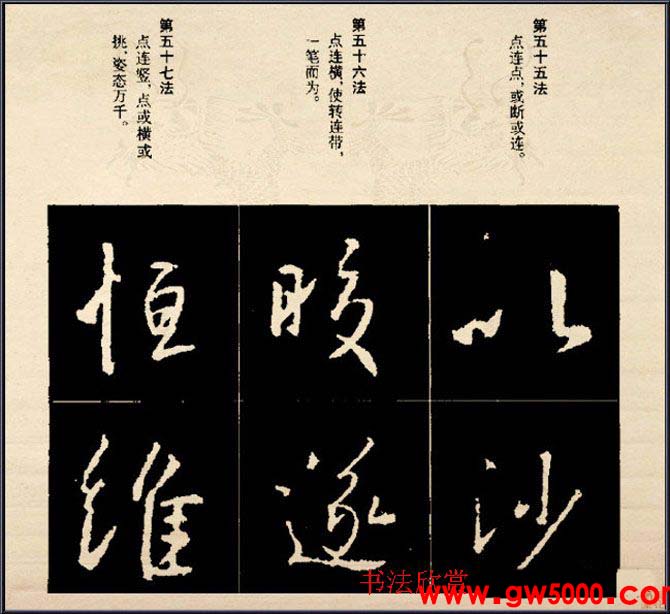 第五十五法
点连点，或断或连。
第五十六法
点连横，使转连带，
一笔而为。
第五十七法
点连竖，点或横或
挑，姿态万千。
以
沙
逐
恒
维
书法欣赏
www.gw5000.com